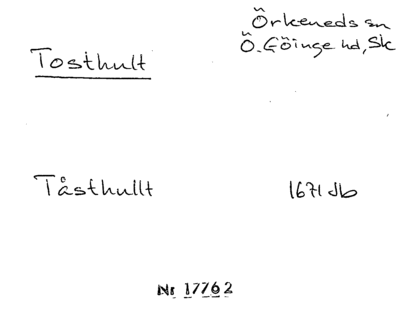 Örkeneds sn
Tosthult
Ö. Göinge hd, Sk
Tåsthullt 1671 Jb
Nr 17762